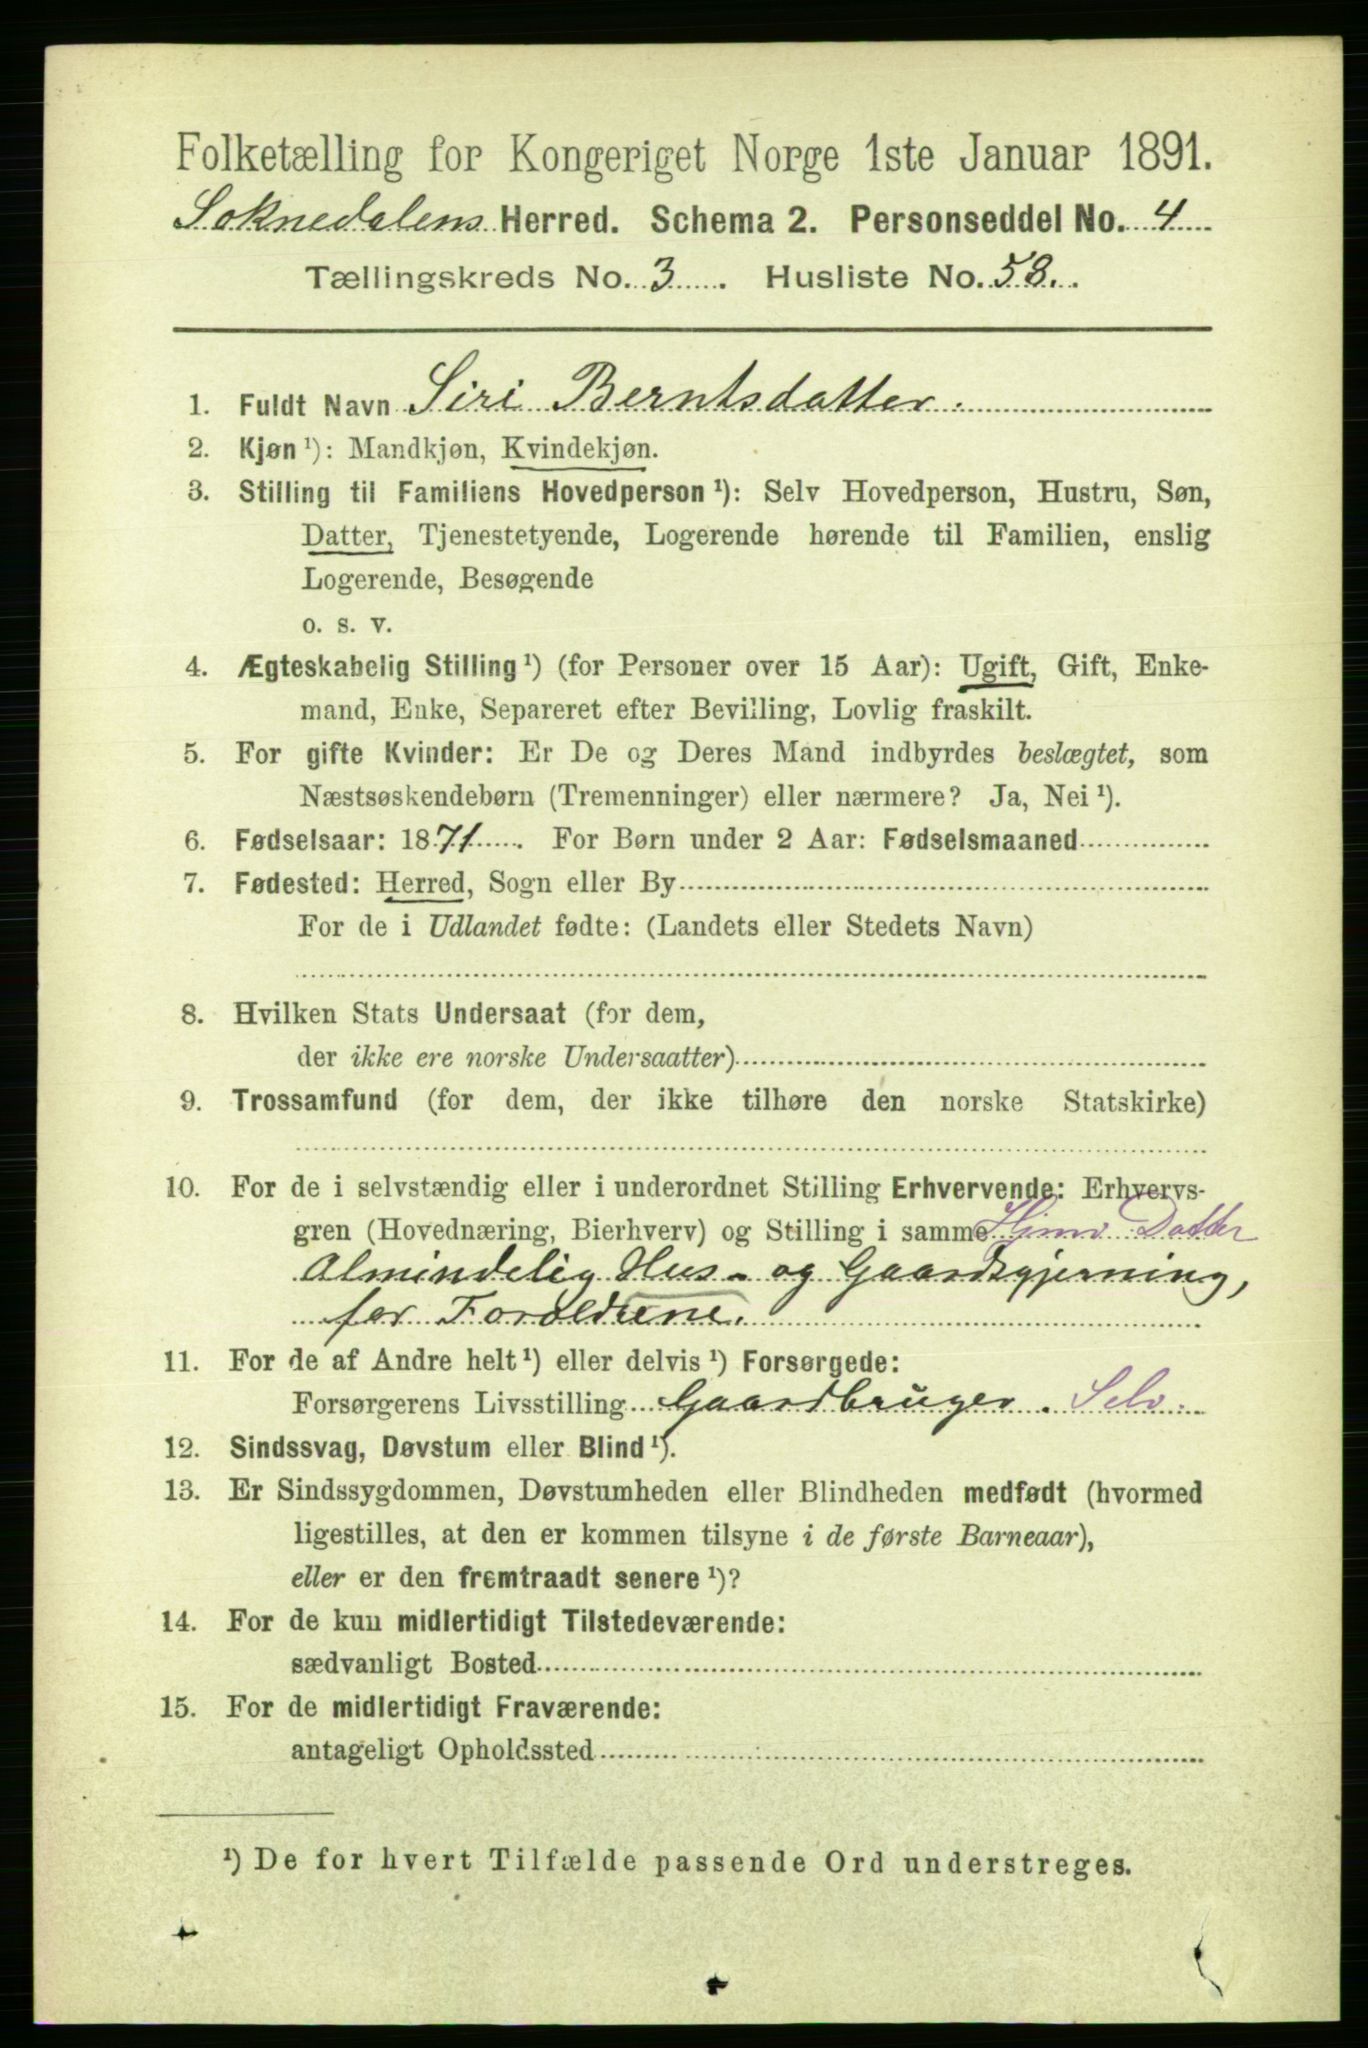 Folketælling for Kongeriget Norge 1ste Januar 1891.
Soknedalens Herred. Schema 2. Personseddel No. 4
Tællingskreds No. 3. Husliste No. 58.
1. Fuldt Navn Siri Berntsdatter.
2. Kjøn ¹): Mandkjøn, Kvindekjøn.
3. Stilling til Familiens Hovedperson ¹): Selv Hovedperson, Hustru, Søn,
Datter, Tjenestetyende, Logerende hørende til Familien, enslig
Logerende, Besøgende
o. s. v.
4. Ægteskabelig Stilling ¹) (for Personer over 15 Aar): Ugift, Gift, Enke-
mand, Enke, Separeret efter Bevilling, Lovlig fraskilt.
5. For gifte Kvinder: Er De og Deres Mand indbyrdes beslægtet, som
Næstsøskendebørn (Tremenninger) eller nærmere? Ja, Nei ¹).
6. Fødselsaar: 1871. For Børn under 2 Aar: Fødselsmaaned
7. Fødested: Herred, Sogn eller By
For de i Udlandet fødte: (Landets eller Stedets Navn)
8. Hvilken Stats Undersaat (for dem,
der ikke ere norske Undersaatter)
9. Trossamfund (for dem, der ikke tilhøre den norske Statskirke)
10. For de i selvstændig eller i underordnet Stilling Erhvervende: Erhvervs-
gren (Hovednæring, Bierhverv) og Stilling i samme Hjmv Datter
Almindelig Hus- og Gaardsgjerning,
for Foroldrene.
11. For de af Andre helt ¹) eller delvis ¹) Forsørgede:
Forsørgerens Livsstilling Gaardbruger. Selv.
12. Sindssvag, Døvstum eller Blind ¹).
13. Er Sindssygdommen, Døvstumheden eller Blindheden medfødt (hvormed
ligestilles, at den er kommen tilsyne i de første Barneaar),
eller er den fremtraadt senere ¹)?
14. For de kun midlertidigt Tilstedeværende:
sædvanligt Bosted
15. For de midlertidigt Fraværende:
antageligt Opholdssted
¹) De for hvert Tilfælde passende Ord understreges.